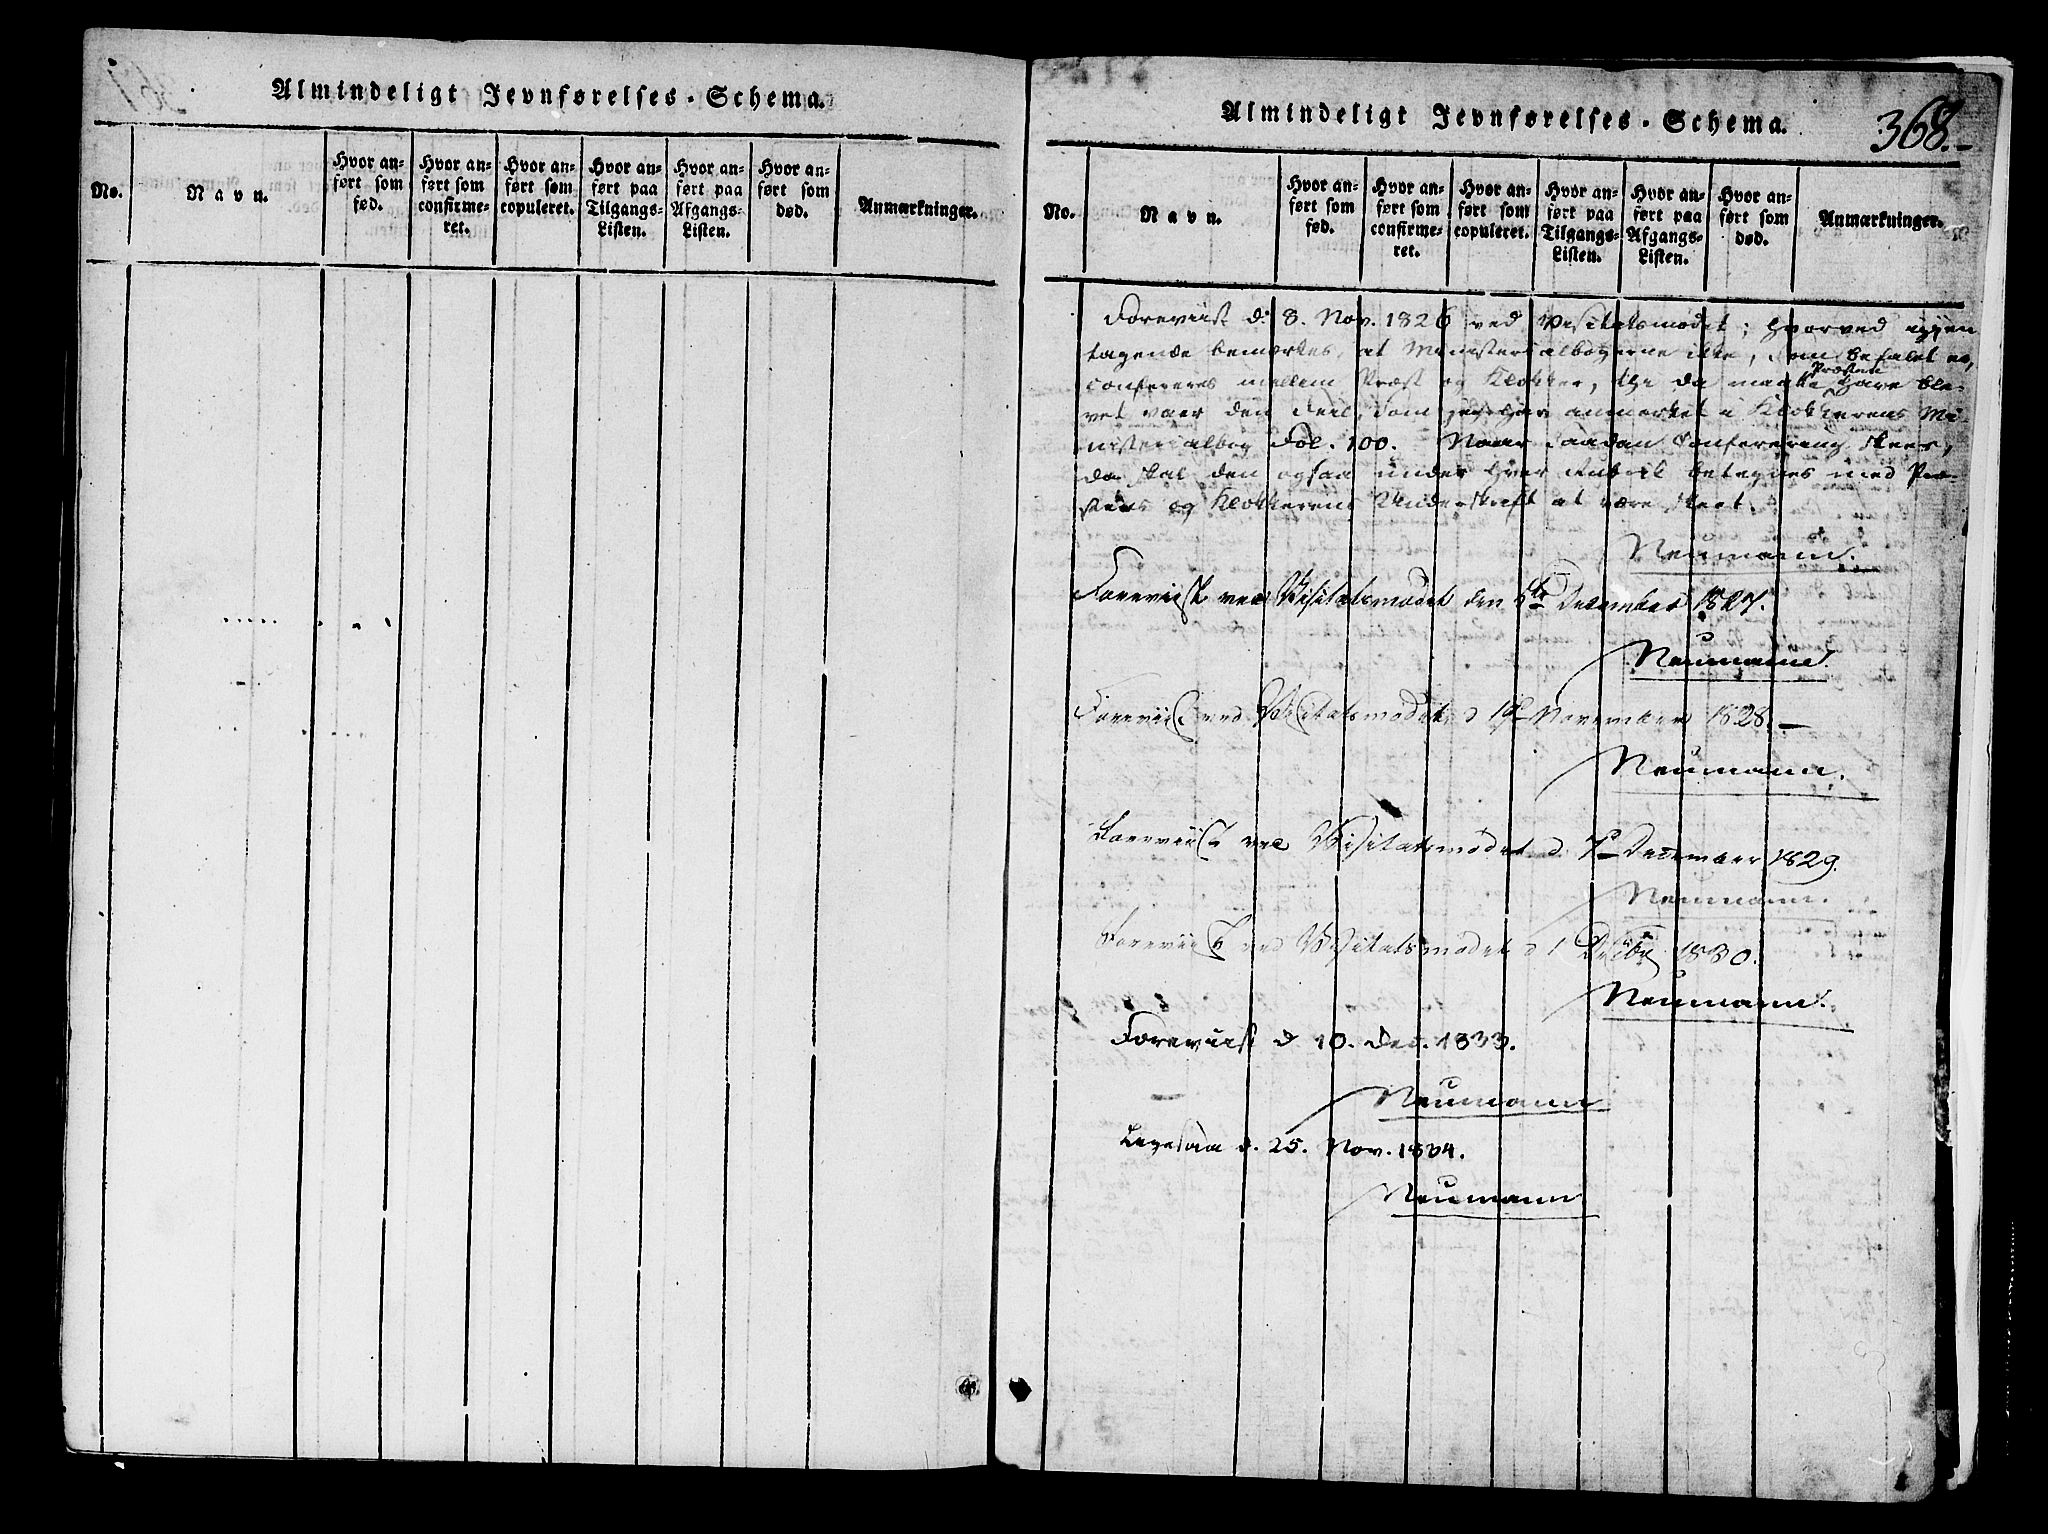 Almindeligt Jevnførelses-Schema.
No.
Navn.
Hvor an-
ført som
fød.
Hvor an-
ført som
confirme-
ret.
Hvor an-
ført som
copuleret.
Hvor an-
ført paa
Tilgangs-
Listen.
Hvor an-
ført paa
Afgangs-
Listen.
Hvor an-
ført som
død.
Anmærkninger.
Almindeligt Jevnførelses-Schema.
368.
No.
Navn.
Hvor an-
ført som
fød.
Hvor an-
ført som
confirme-
ret.
Hvor an-
ført som
copuleret.
Hvor an-
ført paa
Tilgangs-
Listen.
Hvor an-
ført paa
Afgangs-
Listen.
Hvor an-
ført som
død.
Anmærkninger.
Foreviist d. 8. Nov. 1826 ved Visitatsmødet; hvorved igjen
tagende bemærkes, at Ministerialbøgerne ikke, som befalet er,
confereres mellem Præst og Klokker, thi da maatte Præsten have ble-
vet vaer den Feil, som jeg har anmærket i Klokkerens Mi-
nisterialbog Fol. 100. Naar saadan Conferering skeer,
da skal den ogsaa under hver Rubrik betegnes med Præ-
stens og Klokkerens Underskrift at være skeet.
Neumann.
Foreviist ved Visitatsmødet den 5te December 1827.
Neumann.
Foreviist ved Visitatsmødet d 19 November 1828.
Neumann.
Foreviist ved Visitatsmødet d 7 December 1829.
Neumann.
Foreviist ved Visitatsmødet d 1 Decbr 1830.
Neumann.
Foreviist d 10. Dec. 1833.
Neumann
Ligesaa d. 25. Nov. 1834.
Neumann